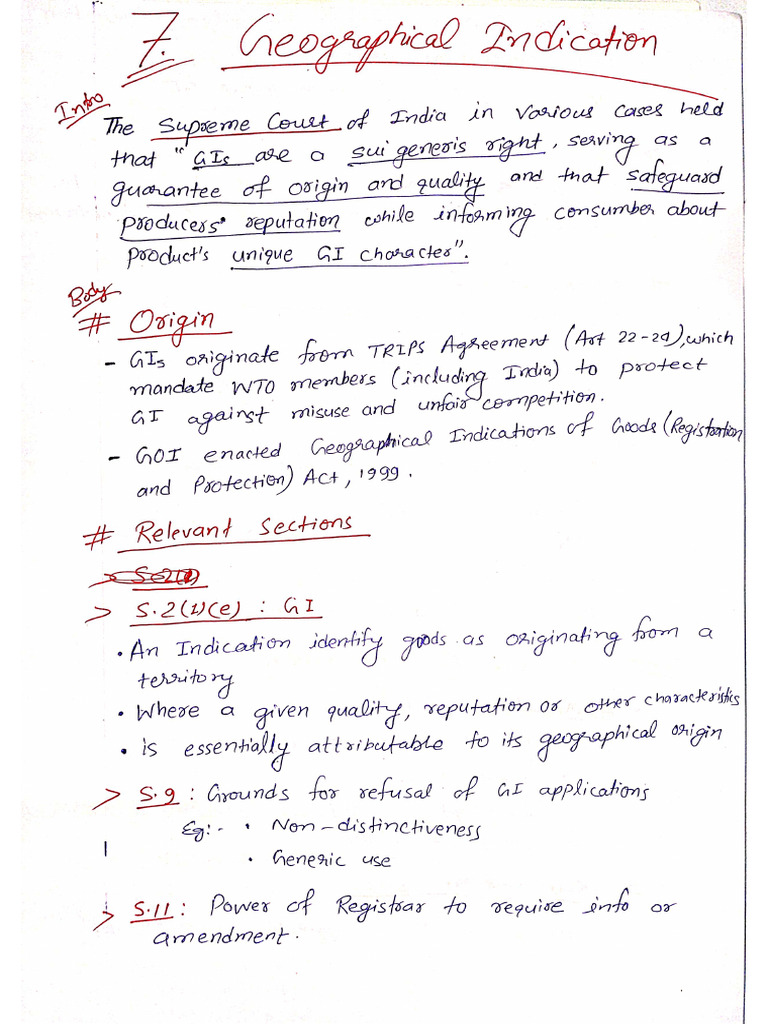 7. Geographical Indication
Intro
The Supreme Court of India in various cases held
that "GIs are a sui generis right, serving as a
guarantee of origin and quality and that safeguard
producers' reputation while informing consumber about
product's unique GI character".
Body
# Origin
- GIs originate from TRIPS Agreement (Art 22-24), which
mandate WTO members (including India) to protect
GI against misuse and unfair competition.
- GOI enacted Geographical Indications of Goods (Registration
and Protection) Act, 1999.
# Relevant Sections
> S.2(1)(e) : GI
• An Indication identify goods as originating from a
territory
• Where a given quality, reputation or other characteristics
• is essentially attributable to its geographical origin
> S.9 : Grounds for refusal of GI applications
Eg:- • Non-distinctiveness
• Generic use
> S.11 : Power of Registrar to require info or
amendment.